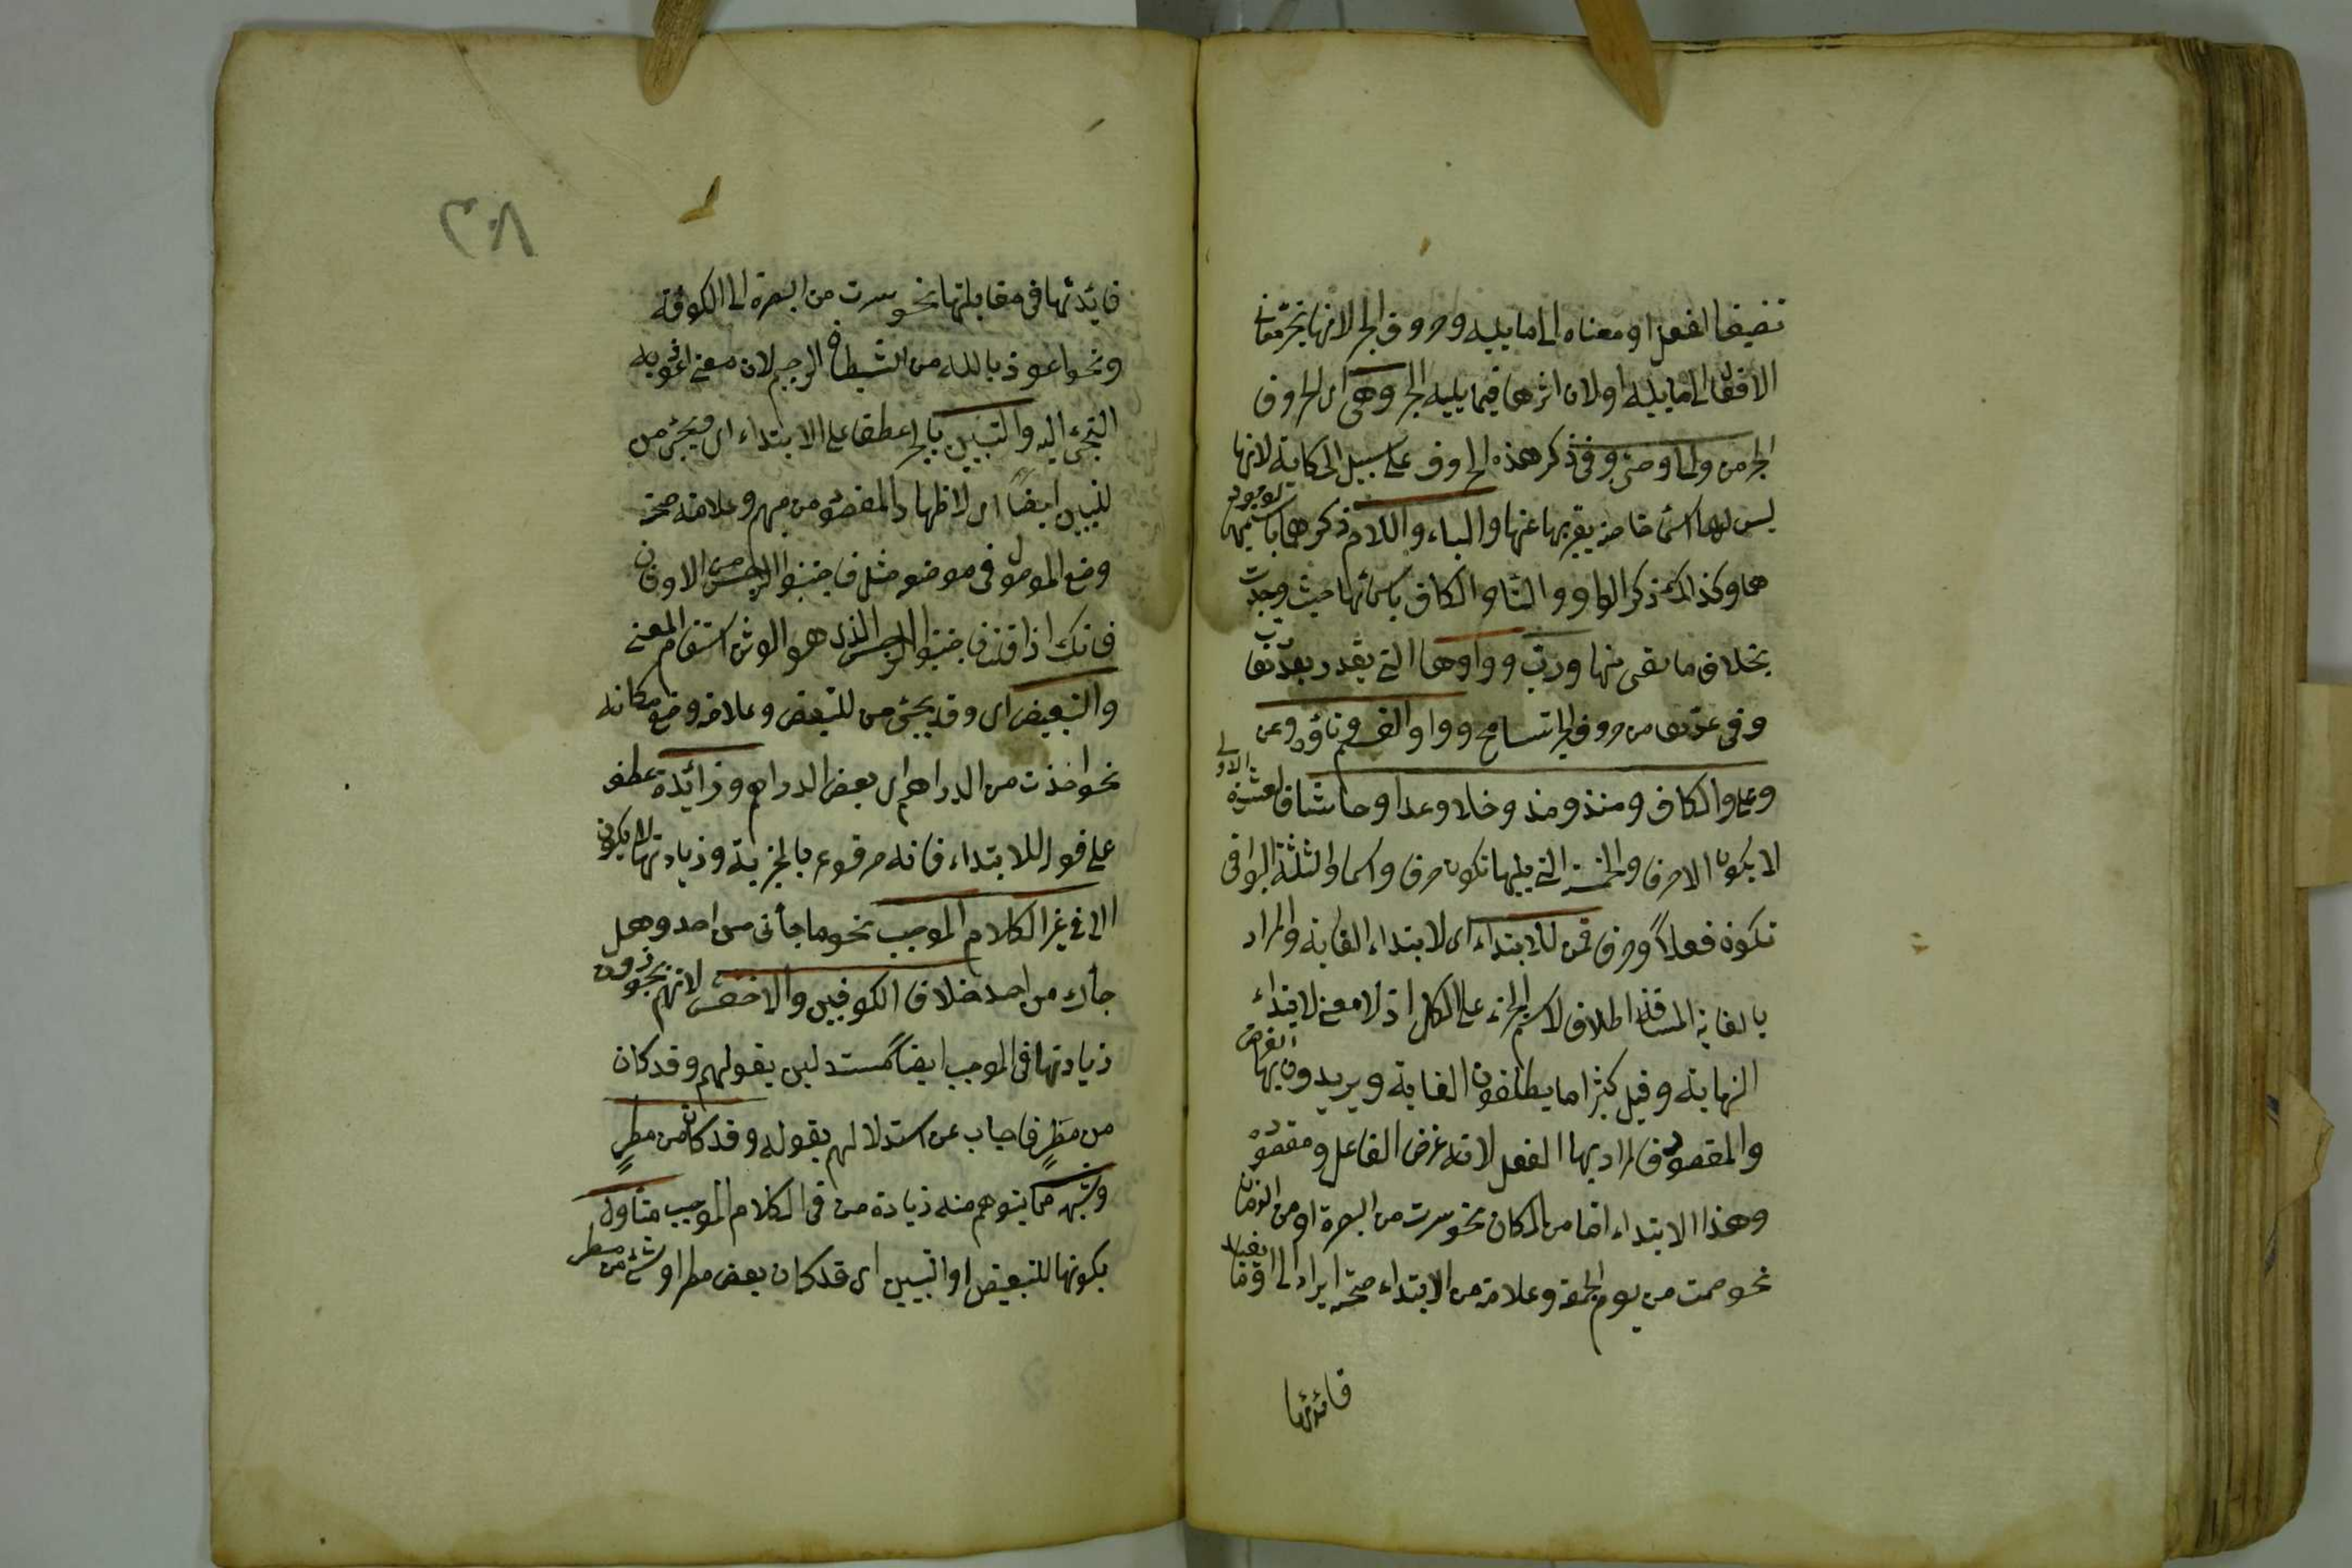 تضيف الفعل او معناه الى ما يليه وحروف الجر لانها تجر معانى
الافعال الى ما يليه او لان اثرها فيما يليه الجر وهى اى الحروف
الجر من والى وحتى وفى ذكر هذه الحروف على سبيل الحكاية لانها
ليس لها اسم خاص يعبر بها عنها والباء واللام ذكرهما باسميهما لوجود
هما وكذلك ذكر الواو والتاء والكاف باسمائها حيث وجدت
بخلاف ما بقى منها ورب وواوها التى يقدر بعدها رب
وفى عدها من حروف الجر تسامح وواو القسم وتاؤه وعن
وعلى والكاف ومنذ ومذ وخلا وعدا وحاشا فالعشرة الاولى
لا يكون الا حرفا والخمسة التى يليها تكون حرفا واسما والثلثة البواقى
تكون فعلاً وحرفا فمن للابتداء اى لابتداء الغاية والمراد
بالغاية المسافة اطلاق لاسم الجزء على الكل اذ لا معنى لابتداء
النهاية وقيل كثيرا ما يطلقون الغاية ويريدون بها الغرض
والمقصود فالمراد بها الفعل لانه غرض الفاعل ومقصوده
وهذا الابتداء اما من المكان نحو سرت من البصرة او من الزمان
نحو صمت من يوم الجمعة وعلامة من الابتداء صحة ايراد الى او ما يفيد
فائدتها
فايدتها فى مقابلتها نحو سرت من البصرة الى الكوفة
ونحو اعوذ بالله من الشيطان الرجيم لان معنى اعوذ به
التجئ اليه والتبيين بالجر عطف على الابتداء اى ويجئ من
للتبيين ايضاً اى لاظهار المقصود من مبهم وعلامته صحة
وضع الموصول فى موضعه مثل فاجتنبوا الرجس من الاوثان
فانك اذا قلت فاجتنبوا الرجس الذى هو الوثن استقام المعنى
والتبعيض اى وقد يجئ من للتبعيض وعلامته وضع مكانه
نحو اخذت من الدراهم اى بعض الدراهم وزائدة عطف
على قوله للابتداء فانه مرفوع بالخبرية وزيادتها لا يكون
الا فى غير الكلام الموجب نحو ما جأنى من احد وهل
جأك من احد خلاف الكوفيين والاخفش لانهم يجوزون
زيادتها فى الموجب ايضاً مستدلين بقولهم وقد كان
من مطرٍ فاجاب عن استدلالهم بقوله وقد كان من مطرٍ
وشبهه مما يتوهم منه زيادة من فى الكلام الموجب متاول
بكونها للتبعيض او التبيين اى قد كان بعض مطر او شئ من مطر